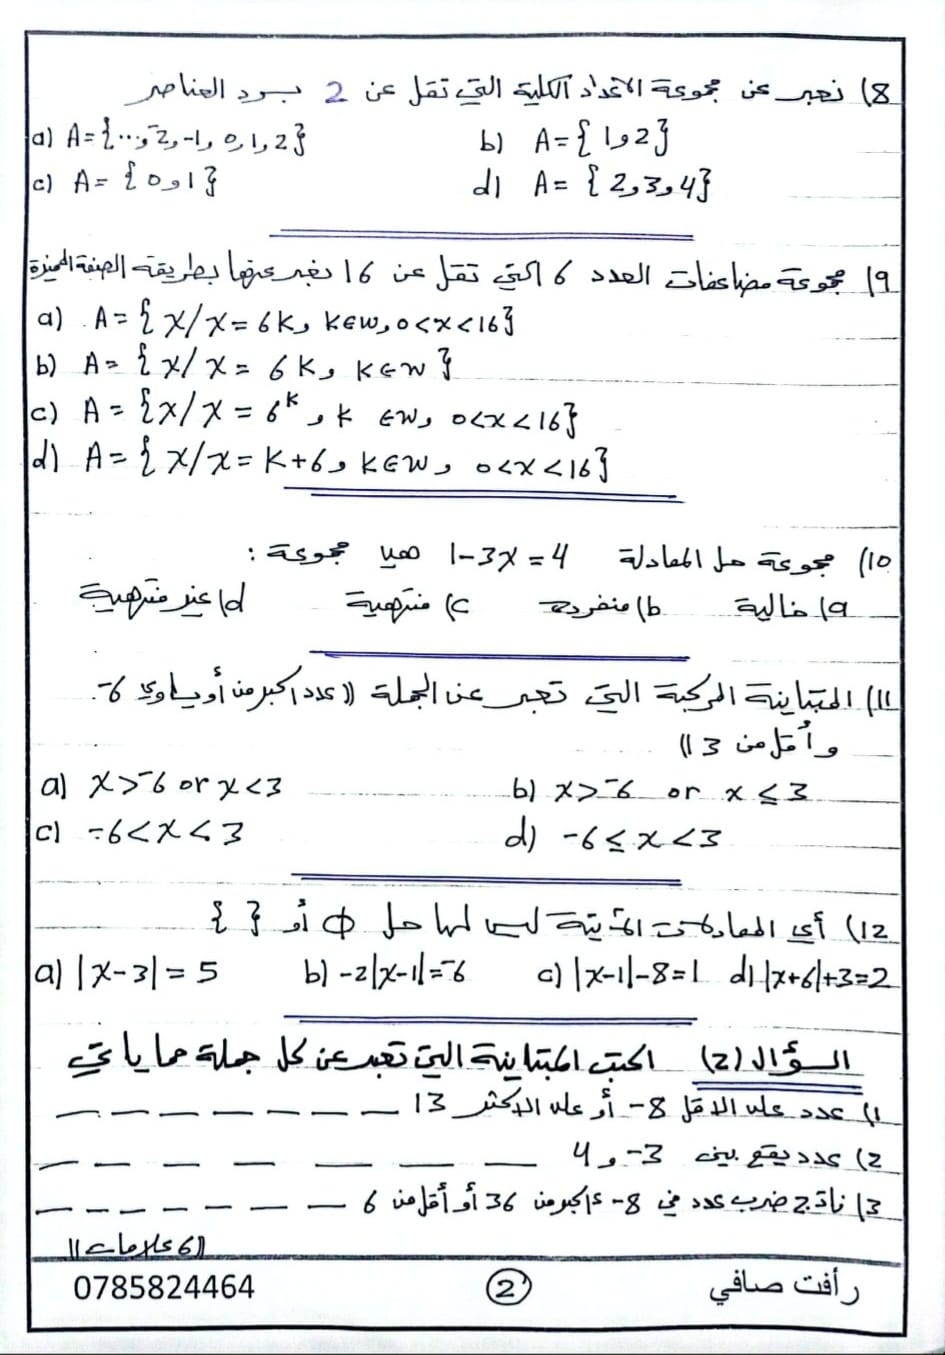 8) نعبر عن مجموعة الاعداد الكلية التي تقل عن 2 بسرد العناصر
a) A={...,-2,-1,0,1,2} b) A={1,2}
c) A={0,1} d) A={2,3,4}
9) مجموعة مضاعفات العدد 6 التي تقل عن 16 نعبر عنها بطريقة الصفة المميزة
a) A={x/x=6k, k∈w, 0<x<16}
b) A={x/x=6k, k∈w}
c) A={x/x=6^k, k∈w, 0<x<16}
d) A={x/x=k+6, k∈w, 0<x<16}
10) مجموعة حل المعادلة 1-3x=4 هي مجموعة :
a) خالية b) منفردة c) منتهية d) غير منتهية
11) المتباينة المركبة التي تعبر عن الجملة (( عدد اكبر من أو يساوي -6
وأقل من 3 ))
a) x>-6 or x<3 b) x>-6 or x≤3
c) -6<x<3 d) -6≤x<3
12) أي المعادلات الآتية ليس لها حل Φ أو { }
a) |x-3|=5 b) -2|x-1|=-6 c) |x-1|-8=1 d) |x+6|+3=2
السؤال (2) اكتب المتباينة التي تعبر عن كل جملة مما يأتي
1) عدد على الاقل -8 أو على الاكثر 13 _ _ _ _ _ _ _
2) عدد يقع بين -3 و 4 _ _ _ _ _ _ _ _
3) ناتج ضرب عدد في -8 اكبر من 36 أو أقل من 6 _ _ _ _ _ _ _ _
((6 علامات))
رأفت صافي 2 0785824464